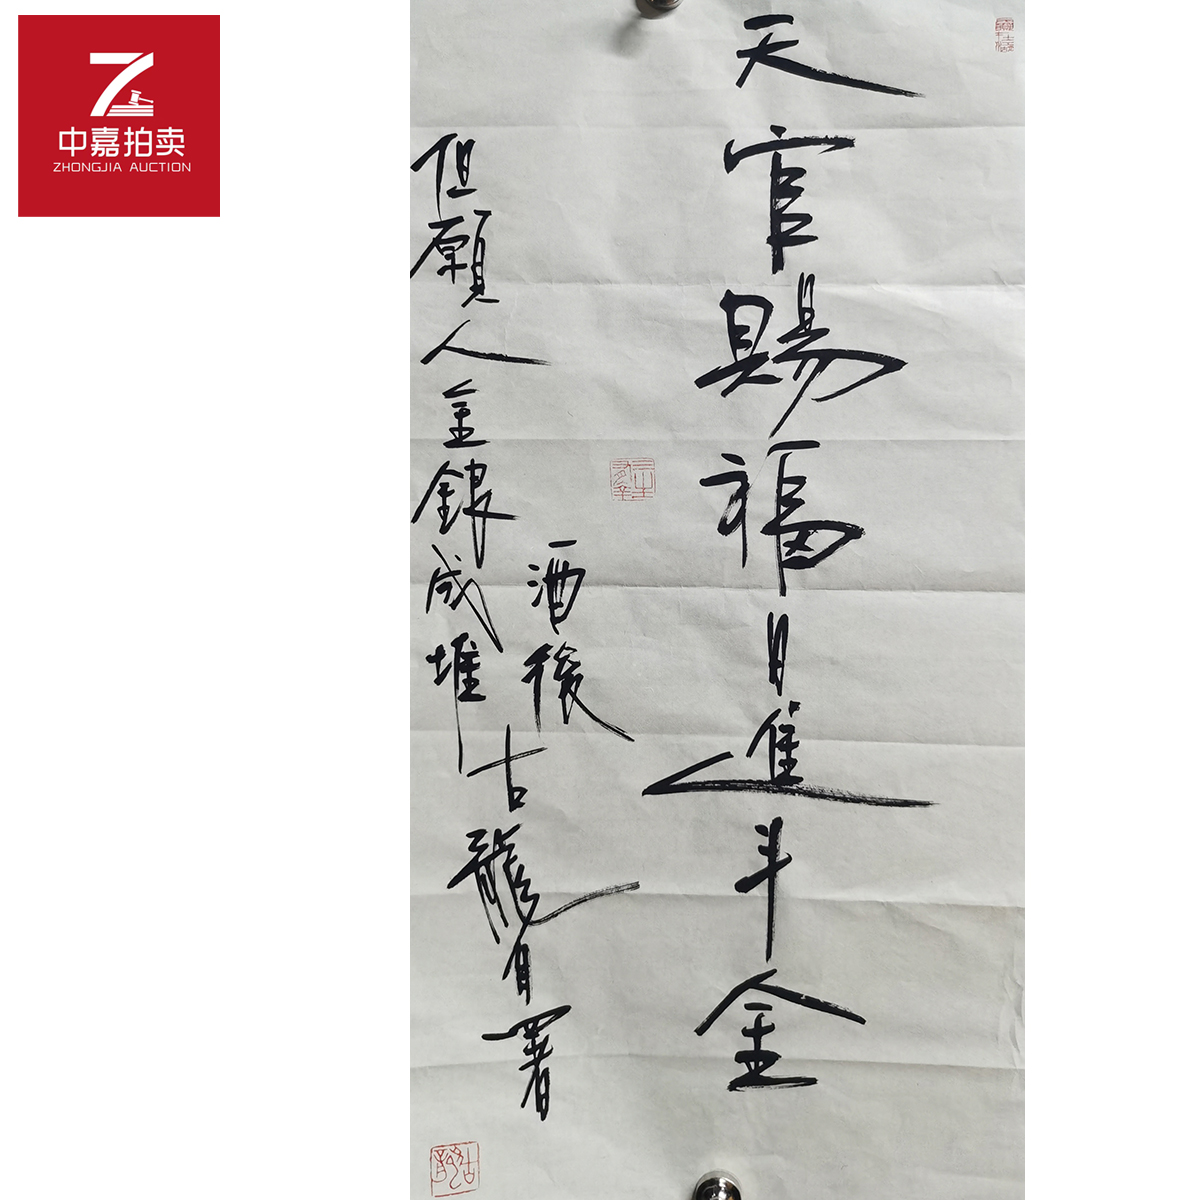 中嘉拍卖
ZHONGJIA AUCTION
天官賜福日進斗金
但願人全銀成堆
酒後古龍自署